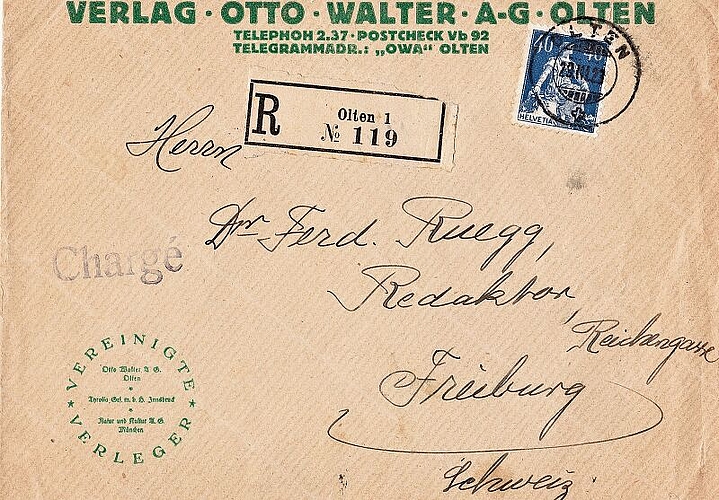 VERLAG · OTTO · WALTER · A-G · OLTEN
TELEPHON 2.37 · POSTCHECK Vb 92
TELEGRAMMADR.: „OWA“ OLTEN
40 40
HELVETIA
OLTEN
R
Olten 1
№ 119
Herrn
Dr Ferd. Ruegg,
Redaktor,
Reichengasse
Freiburg
Schweiz.
Chargé
VEREINIGTE
Otto Walter A. G.
Olten
Tyrolia Ges. m. b. H. Innsbruck
Natur und Kultur A. G.
München
VERLEGER